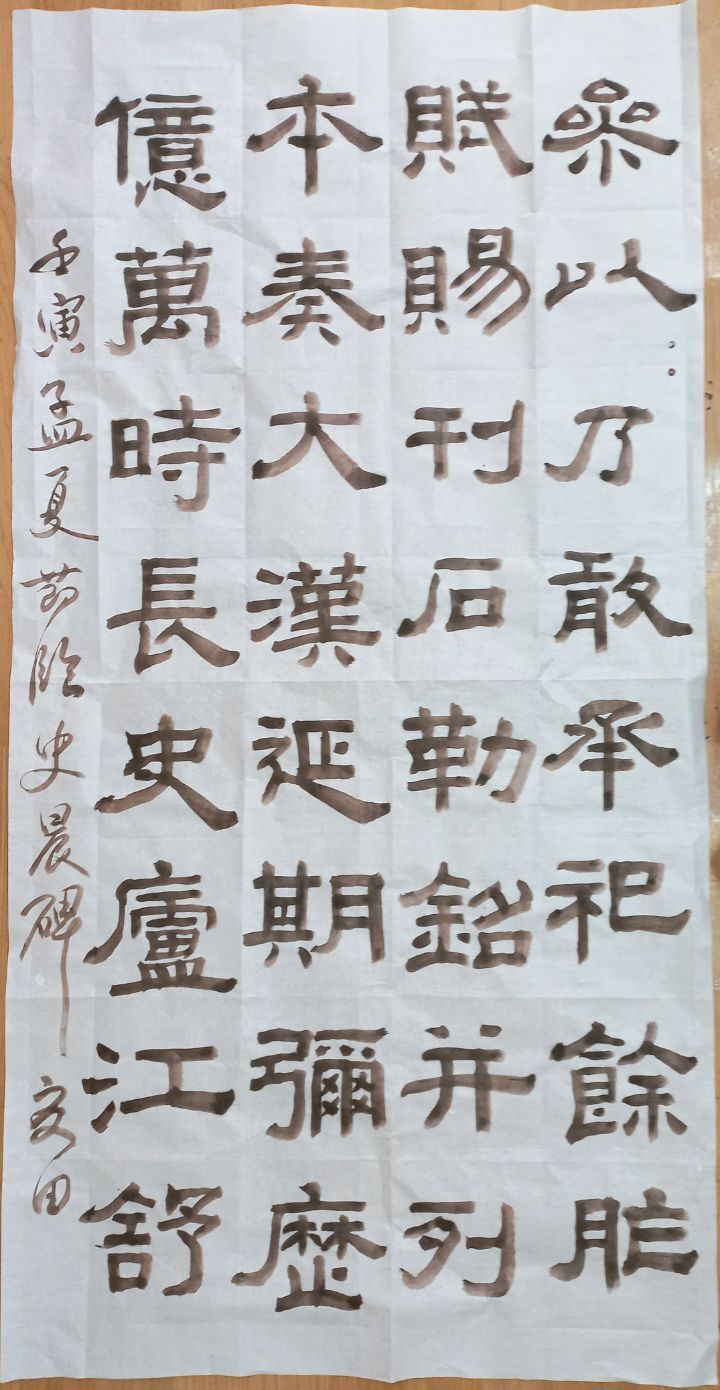 叅以乃敢承祀餘胙
賦賜刊石勒銘并列
本奏大漢延期彌歷
億萬時長史廬江舒
壬寅孟夏節臨史晨碑 田